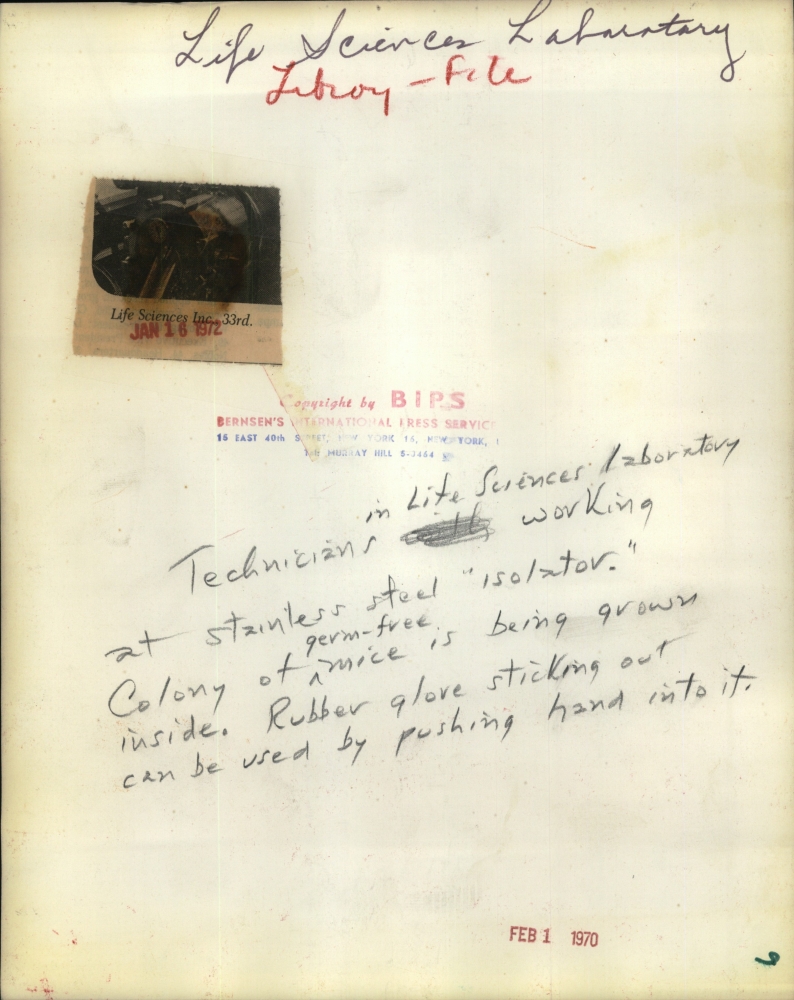 Life Sciences Laboratory
Library - File
Life Sciences Inc. 33rd.
JAN 16 1972
Copyright by BIPS
BERNSEN'S INTERNATIONAL PRESS SERVICE
15 EAST 40th STREET, NEW YORK 16, NEW YORK,
MURRAY HILL 5-3464
in Life Sciences laboratory
Technicians working
at stainless steel "isolator."
germ-free
Colony of ^ mice is being grown
inside. Rubber glove sticking out
can be used by pushing hand into it.
FEB 1 1970